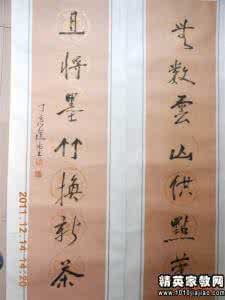 無數雲山供點筆
且將墨竹換新茶
丁亥
2011.12.14 14:20
精英家教网
www.1010jiajiao.com